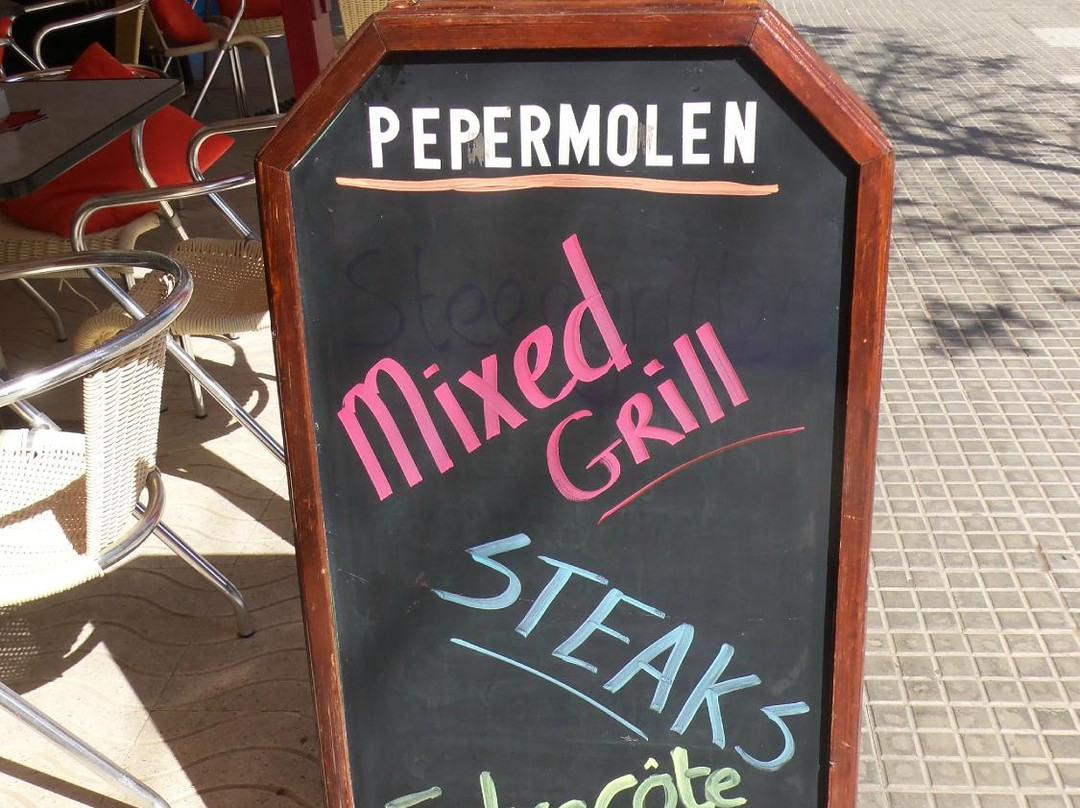 PEPERMOLEN
Mixed
Grill
STEAKS